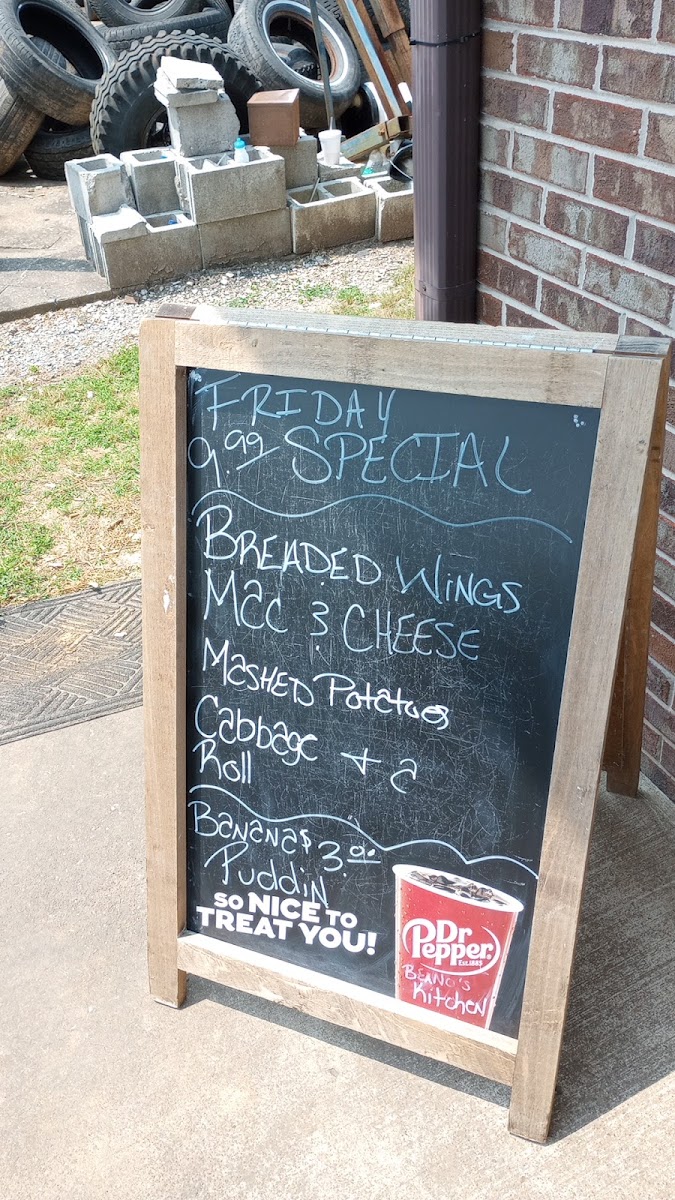 FRIDAY
9.99 SPECIAL
BREADED WINGS
Mac & CHEESE
MaSHED Potatoes
Cabbage + a
Roll
Banana $3.00
Puddin
SO NICE TO
TREAT YOU!
Dr
Pepper
EST. 1885
BEANO'S
Kitchen